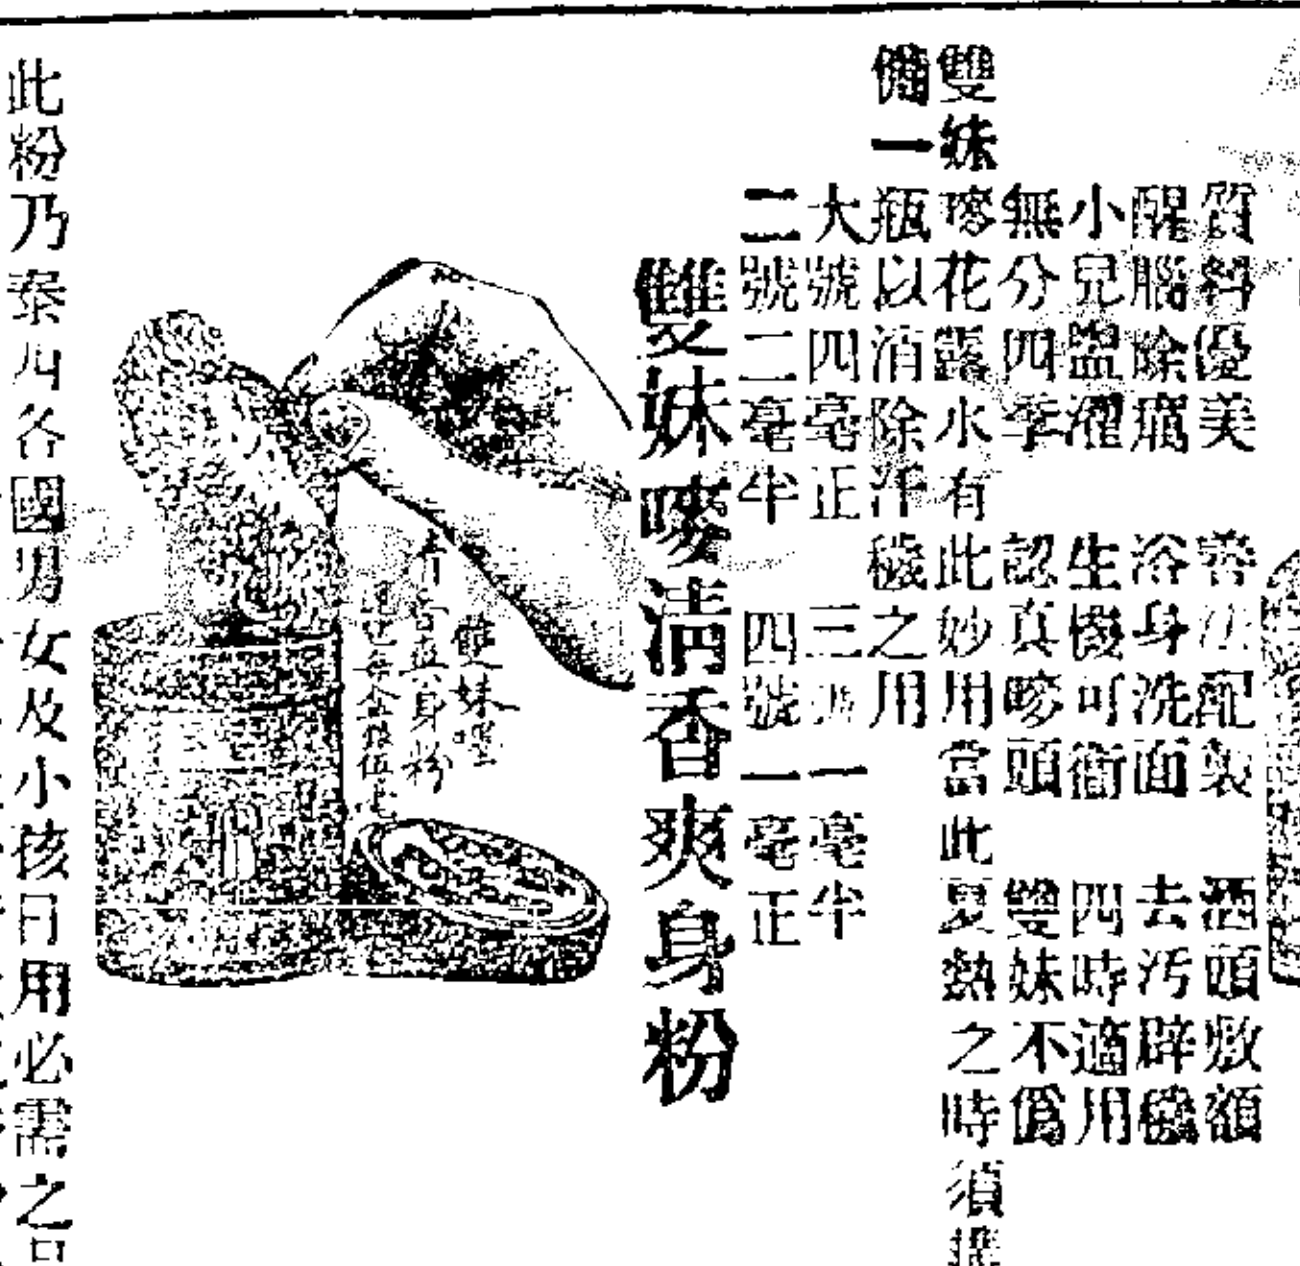 質料優美 善法配製 洒頭敷額
醒腦除痛 浴身洗面 去汚辟穢
小兒盥濯 生機可衛 四時適用
無分四季 認真嘜頭 雙妹不僞
雙妹嘜花露水有此妙用當此夏熱之時須
備一瓶以消除汗穢之用
大號四毫正 三號一毫半
二號二毫半 四號一毫正
雙妹嘜淸香爽身粉
雙妹嘜
身粉
此粉乃泰西各國男女及小孩日用必需之品